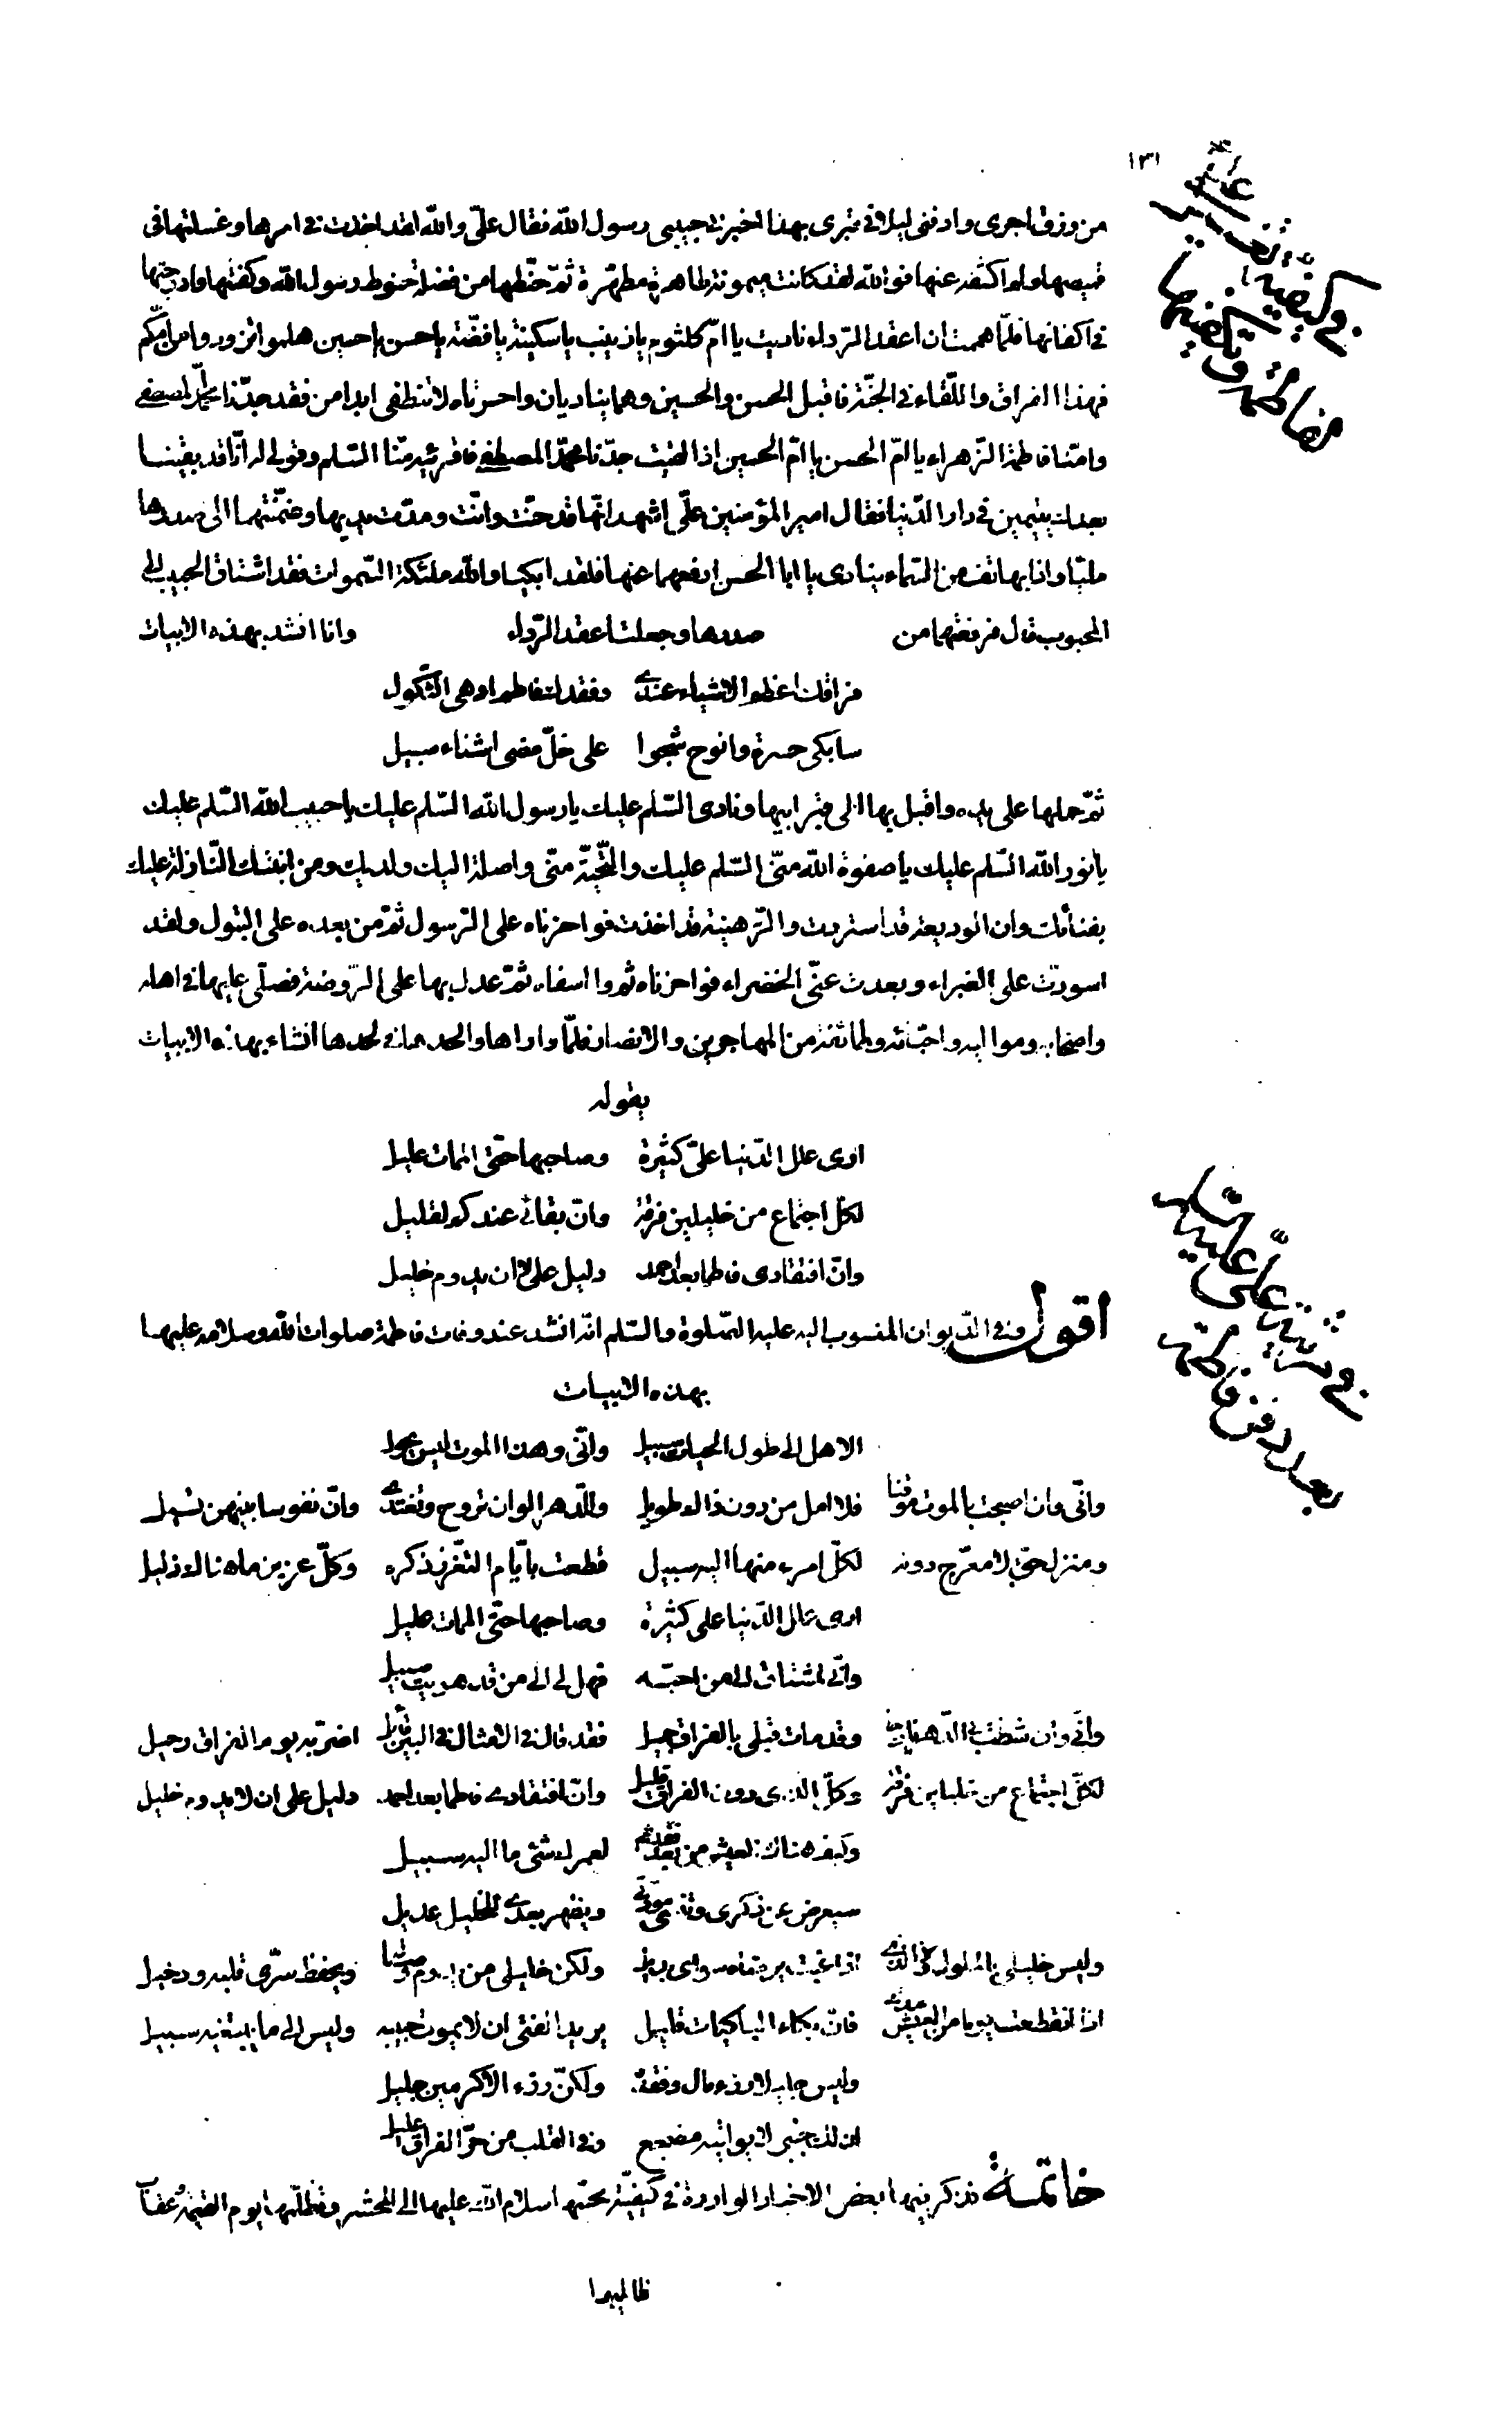 ١٣١
من ورق اجرى وادفنى ليلا فى قبرى بهذا اخبرنى حبيبى رسول الله فقال علىّ والله لقد اخذت فى امرها وغسلتها فى
قميصها ولم اكشفه عنها فو الله لقد كانت ميمونة طاهرة مطهّرة ثمّ حنّطها من فضلة حنوط رسول الله وكفنتها وادرجتها
فى اكفانها فلمّا هممت ان اعقد الرّداء ناديت يا امّ كلثوم يا زينب يا سكينة يا فضّة يا حسن يا حسين هلموا تزوروا من امّكم
فهذا الفراق واللّقاء فى الجنّة فاقبل الحسن والحسين وهما يناديان واحسرتاه لا تنطفى ابدا من فقد جدّنا محمّد المصطفى
وامّنا فاطمة الزّهراء يا امّ الحسن يا امّ الحسين اذا لقيت جدّنا محمّد المصطفى فاقرئيه منّا السّلم وقولى له انّا قد بقينا
بعدك يتيمين فى دار الدّنيا فقال امير المؤمنين علىّ اشهد انّها قد حنّت وانّت ومدّت يديها وضمّتهما الى صدرها
مليّا واذا بهاتف من السّماء ينادى يا ابا الحسن ارفعهما عنها فلقد ابكيا والله ملئكة السّموات فقد اشتاق الحبيب الى
المحبوب قال فرفعتهما من صدرها وجعلت اعقد الرّداء وانا انشد بهذه الابيات
فراقك اعظم الاشياء عندى وفقدك فاطم ادهى الثّكول
سابكى حسرة وانوح شجوا على خلّ مضى اسناء سبيل
ثمّ حملها على يده واقبل بها الى قبر ابيها ونادى السّلم عليك يا رسول الله السّلم عليك يا حبيب الله السّلم عليك
يا نور الله السّلم عليك يا صفوة الله منّى السّلم عليك والتّحيّة منّى واصلة اليك ولديك ومن ابنتك النّازلة عليك
بفنائك وان الوديعة قد استردت والرّهينة قد اخذت فواحزناه على الرّسول ثمّ من بعده على البتول ولقد
اسودّت علىّ الغبراء وبعدت عنّى الخضراء فواحزناه ثم وا اسفاه ثمّ عدل بها على الرّوضة فصلّى عليها فى اهله
واصحابه ومواليه واحبّائه وطائفة من المهاجرين والانصار فلمّا واراها والحدها فى لحدها انشاء بهذه الابيات
يقول
ارى علل الدّنيا علىّ كثيرة وصاحبها حتّى الممات عليل
لكلّ اجتماع من خليلين فرقة وانّ بقائى عندكم لقليل
وانّ افتقادى فاطما بعد احمد دليل على ان لا يدوم خليل
اقول وفى الدّيوان المنسوب اليه عليه الصّلوة والسّلم انّه انشد عند وفات فاطمة صلوات الله وسلامه عليها
بهذه الابيات
الا هل الى طول الحيات سبيل وانّى وهذا الموت ليس يحول
وانّى وان اصبحت بالموت موقنا فلى امل من دون ذاك طويل وللدّهر الوان تروح وتغتدى وانّ نفوسا بينهن تسيل
ومنزل حقّ لا معرّج دونه لكلّ امرء منها اليه سبيل قطعت بايّام التّعزّز ذكره وكلّ عزيز ما هناك ذليل
ارى علل الدّنيا على كثيرة وصاحبها حتّى الممات عليل
وانّى لمشتاق الى من احبّه فهل لى الى من قد هويت سبيل
وانّى وان شطّت بى الدّار نازحا وقد مات قبلى بالفراق جميل فقد قال فى الامثال فى البين قائل اضرّ به يوم الفراق رحيل
لكلّ اجتماع من خليلين فرقة وكلّ الذى دون الفراق قليل وانّ افتقادى فاطما بعد احمد دليل على ان لا يدوم خليل
وكيف هناك العيش من بعد فقدهم لعمرك شئ ما اليه سبيل
سيعرض عن ذكرى وتنسى مودّتى ويظهر بعدى للخليل عديل
وليس خليلى بالملول ولا الذى اذا غبت يرضاه سواى بديل ولكن خليلى من يدوم وصاله ويحفظ سرّى قلبه ودخيل
اذا انقطعت يوما من العيش مدتى فانّ بكاء الباكيات قليل يريد الفتى ان لا يموت حبيبه وليس الى ما يبتغيه سبيل
وليس جليلا رزء مال وفقده ولكنّ رزء الاكرمين جليل
لذلك جنبى لا يواتيه مضجع وفى القلب من حرّ الفراق غليل
خاتمة نذكر فيها بعض الاخبار الواردة فى كيفيّة محبّتها سلام الله عليها الى المحشر وتظلّمها يوم القيمة وعقاب
ظالميها
فى مرثية علىّ عليه السّلام
بعد دفن فاطمة